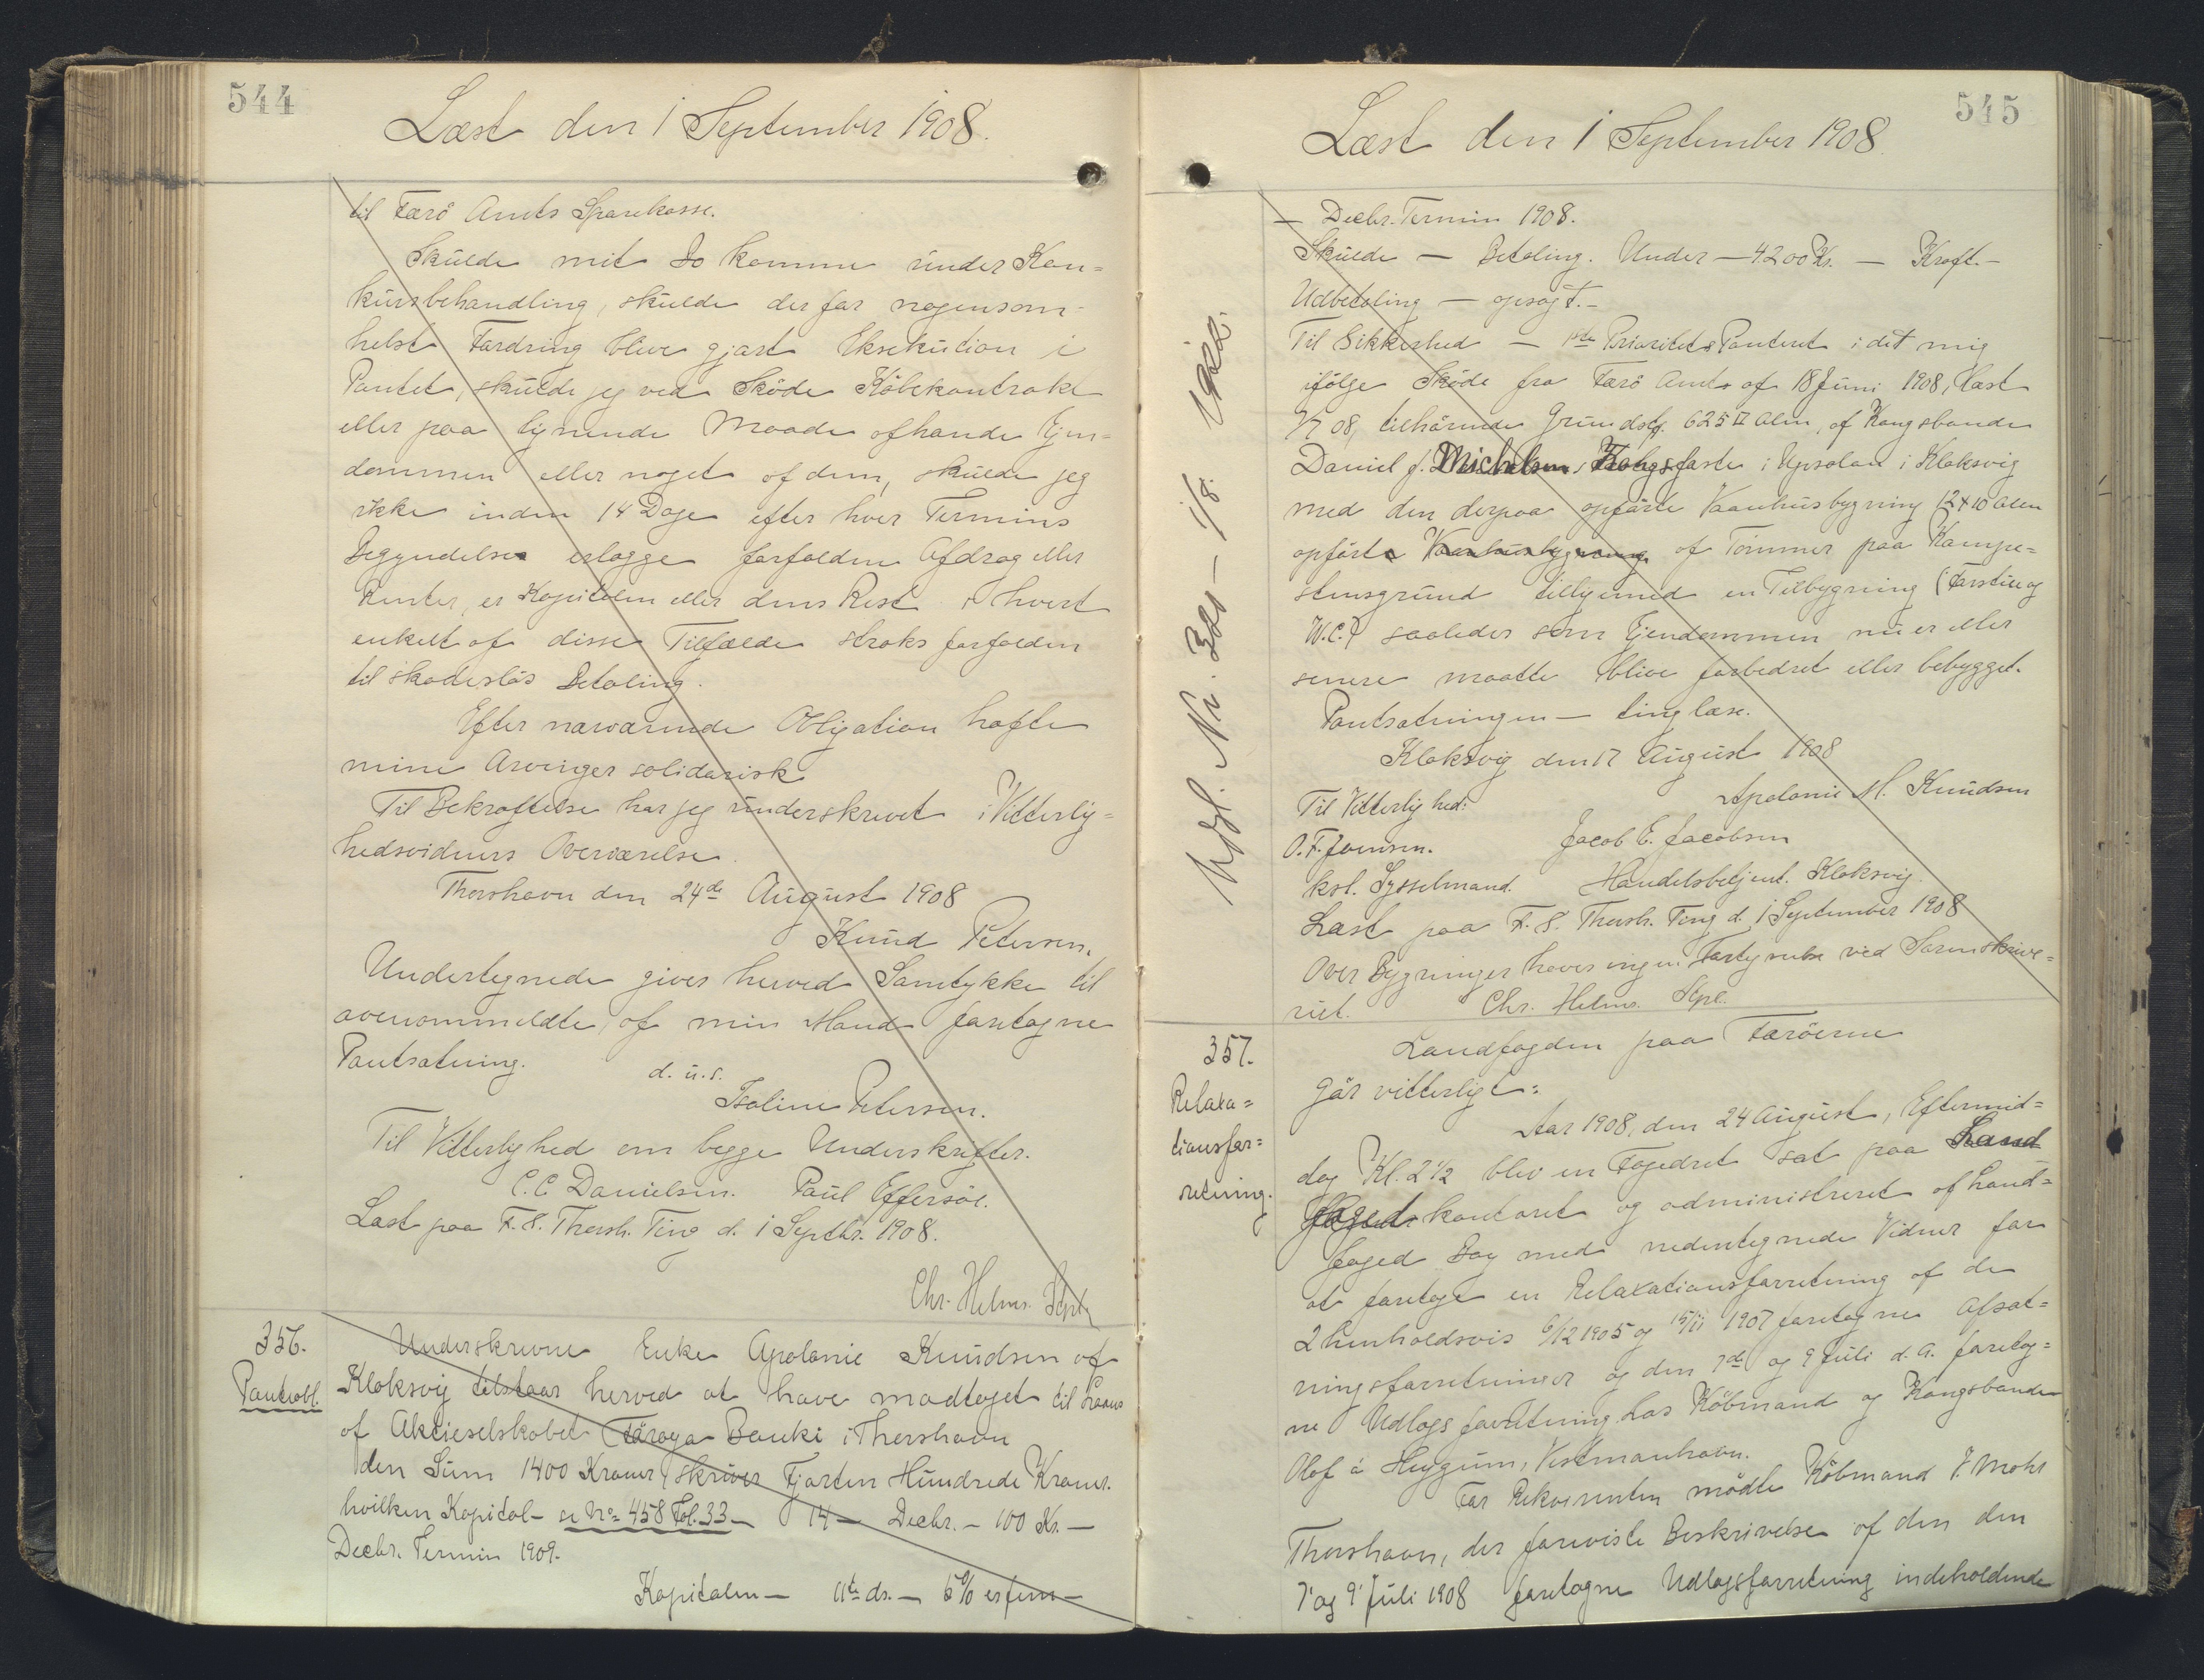 544
Læst den 1 September 1908.
til Færö Amts Sparekasse.
Skulde mit Bo komme under Kon=
kursbehandling, skulde der for nogensom=
helst Fordring blive gjort Eksekution i
Pantet, skulde jeg ved Sköde Köbekontrakt
eller paa lignende Maade afhænde Ejen=
dommen eller noget af dem, skulde jeg
ikke inden 14 Dage efter hver Termins
Begyndelse erlægge forfalden Afdrag eller
Renter, er Kapitalen eller dens Rest i hvert
enkelt af disse Tilfælde straks forfalden
til skadeslös Betaling.
Efter nærværende Obligation hæfte
mine Arvinger solidarisk
Til Bekræftelse har jeg underskrevet i Vitterlig=
hedsvidners Overværelse.
Thorshavn den 24de August 1908
Knud Petersen.
Undertegnede giver herved Samtykke til
ovenommeldte, af min Mand foretagne
Pantsætning.
d. u. s.
Isoline Petersen.
Til Vitterlighed om begge Underskrifter.
C. C. Danielsen. Paul Effersöe.
Læst paa F. S. Thorsh. Ting d. 1 Septbr. 1908.
Chr. Helms. Sept.
356.
Panteobl.
Underskrevne Enke Apolonie Knudsen af
Kloksvig tilstaar herved at have modtaget til Laans
af Aktieselskabet Färoya Banki i Thorshavn
den Sum 1400 Kroner, skriver Fjorten Hundrede Kroner.
hvilken Kapital - se No= 458 Fol. 33 - 14 - Decbr. - 100 Kr. -
Decbr. Termin 1909.
Kapitalen - 11te ds. - 5% er fem -
545
Læst den 1 September 1908.
- Decbr. Termin 1908.
Skulde - Betaling. Under - 4200 Kr. - Kraft. -
Udbetaling - opsagt. -
Til Sikkerhed - 1ste Prioritets Panteret i det mig
ifölge Sköde fra Færö Amt af 18 Juni 1908, læst
1/7 08, tilhörende Grundstk. 625 □ Alen, af Kongsbonde
Daniel J. Michelsen, Kongsfæste i Upsalan i Kloksvig
med den derpaa opförte Vaanhusbygning 12 x 10 Alen
opfört Vaanhusbygning af Tömmer paa Kampe=
stensgrund tilligemed en Tilbygning (Forstue og
W.C.) saaledes som Ejendommen nu er eller
senere maatte blive forbedret eller bebygget.
Pantsætningen - tinglæse.
Kloksvig den 17 August 1908
Apolonie M. Knudsen
Til Vitterlighed:
O. F. Joensen. Jacob E. Jacobsen
kst. Sysselmand. Handelsbetjent. Kloksvig.
Læst paa F. S. Thorsh. Ting d. 1 September 1908
Over Bygninger haves ingen Fortegnelse ved Sorenskrive=
riet. Chr. Helms. Sept.
Udsl. Nr. 1/8 1922.
357.
Relaxa=
tionsfor=
retning.
Landfogden paa Færöerne
gör vitterligt:
Aar 1908, den 24 August, Eftermid=
dag Kl. 2 1/2 blev en Fogedret sat paa Land
foged kontoret og administreret af Land=
foged Bay med nedentegnede Vidner for
at foretage en Relaxationsforretning af de
2 henholdsvis 6/12 1905 og 15/11 1907 foretagne Afsæt=
ningsforretninger og den 7de og 9 Juli d. A. foretag=
ne Udlægsforretning hos Köbmand og Kongsbonde
Olof á Heygum, Vestmanhavn.
For Rekvirenten mödte Köbmand J. Mohr
Thorshavn, der foreviste Beskrivelse af den den
7' og 9' Juli 1908 foretagne Udlægsforretning indeholdende